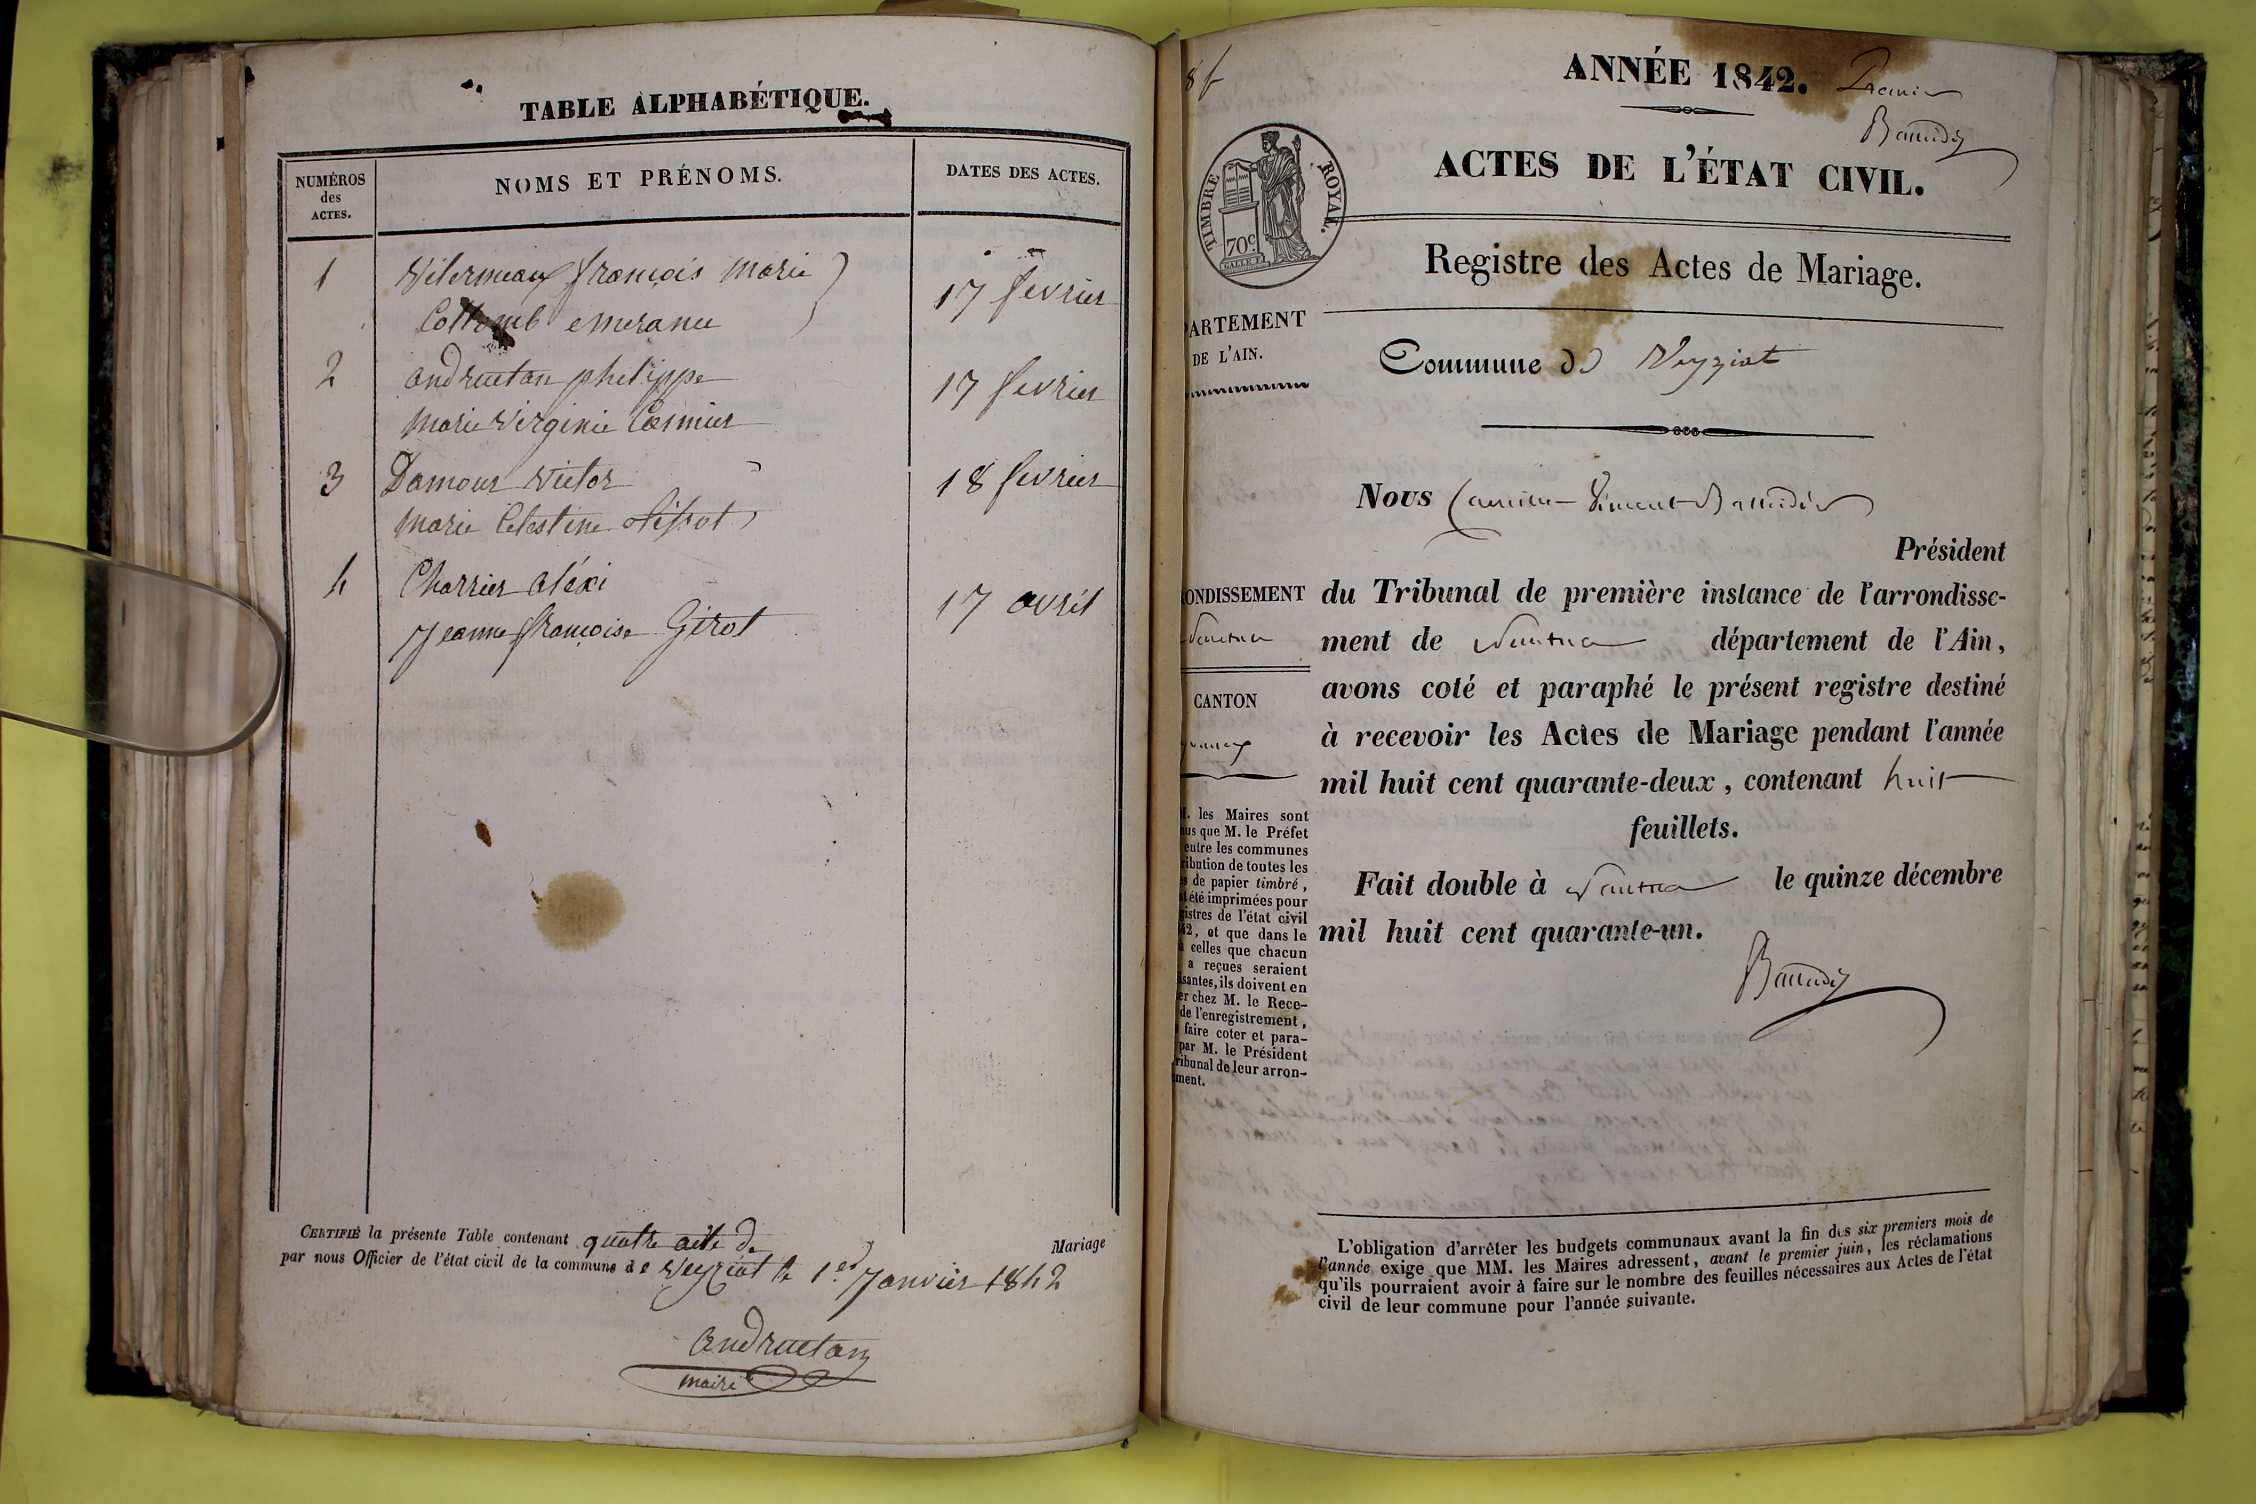 TABLE ALPHABÉTIQUE.
NUMÉROS
des
ACTES.
NOMS ET PRÉNOMS.
DATES DES ACTES.
1
françois marie
17 fevrier
2
andruetan philippe
17 fevrier
marie Virginie
3
Damour Victor
18 fevrier
marie Celestine
4
Charrier aléxi
17 avril
Jeanne françoise Girot
CERTIFIÉ la présente Table contenant quatre acte de
Mariage
par nous Officier de l'état civil de la commune de Veyziat le 1er Janvier 1842
andruetan
maire
8 f
ANNÉE 1842.
ACTES DE L'ÉTAT CIVIL.
TIMBRE ROYAL.
70c
Registre des Actes de Mariage.
PARTEMENT
DE L'AIN.
Commune de Veyziat
Nous
Président
ONDISSEMENT
du Tribunal de première instance de l'arrondisse-
Nantua
ment de Nantua département de l'Ain,
avons coté et paraphé le présent registre destiné
CANTON
à recevoir les Actes de Mariage pendant l'année
mil huit cent quarante-deux, contenant huit
feuillets.
Fait double à Nantua le quinze décembre
mil huit cent quarante-un.
M. les Maires sont
nus que M. le Préfet
entre les communes
ribution de toutes les
s de papier timbré,
t été imprimées pour
gistres de l'état civil
42, et que dans le
celles que chacun
a reçues seraient
isantes, ils doivent en
er chez M. le Rece-
de l'enregistrement,
faire coter et para-
par M. le Président
ribunal de leur arron-
ment.
L'obligation d'arrêter les budgets communaux avant la fin des six premiers mois de
l'année exige que MM. les Maires adressent, avant le premier juin, les réclamations
qu'ils pourraient avoir à faire sur le nombre des feuilles nécessaires aux Actes de l'état
civil de leur commune pour l'année suivante.